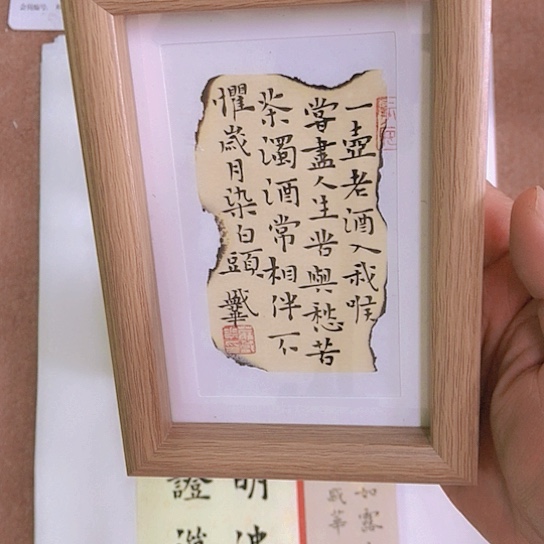 一壺老酒入我喉
嘗盡人生苦與愁苦
茶濁酒常相伴不
懼歲月染白頭
證
明
如露